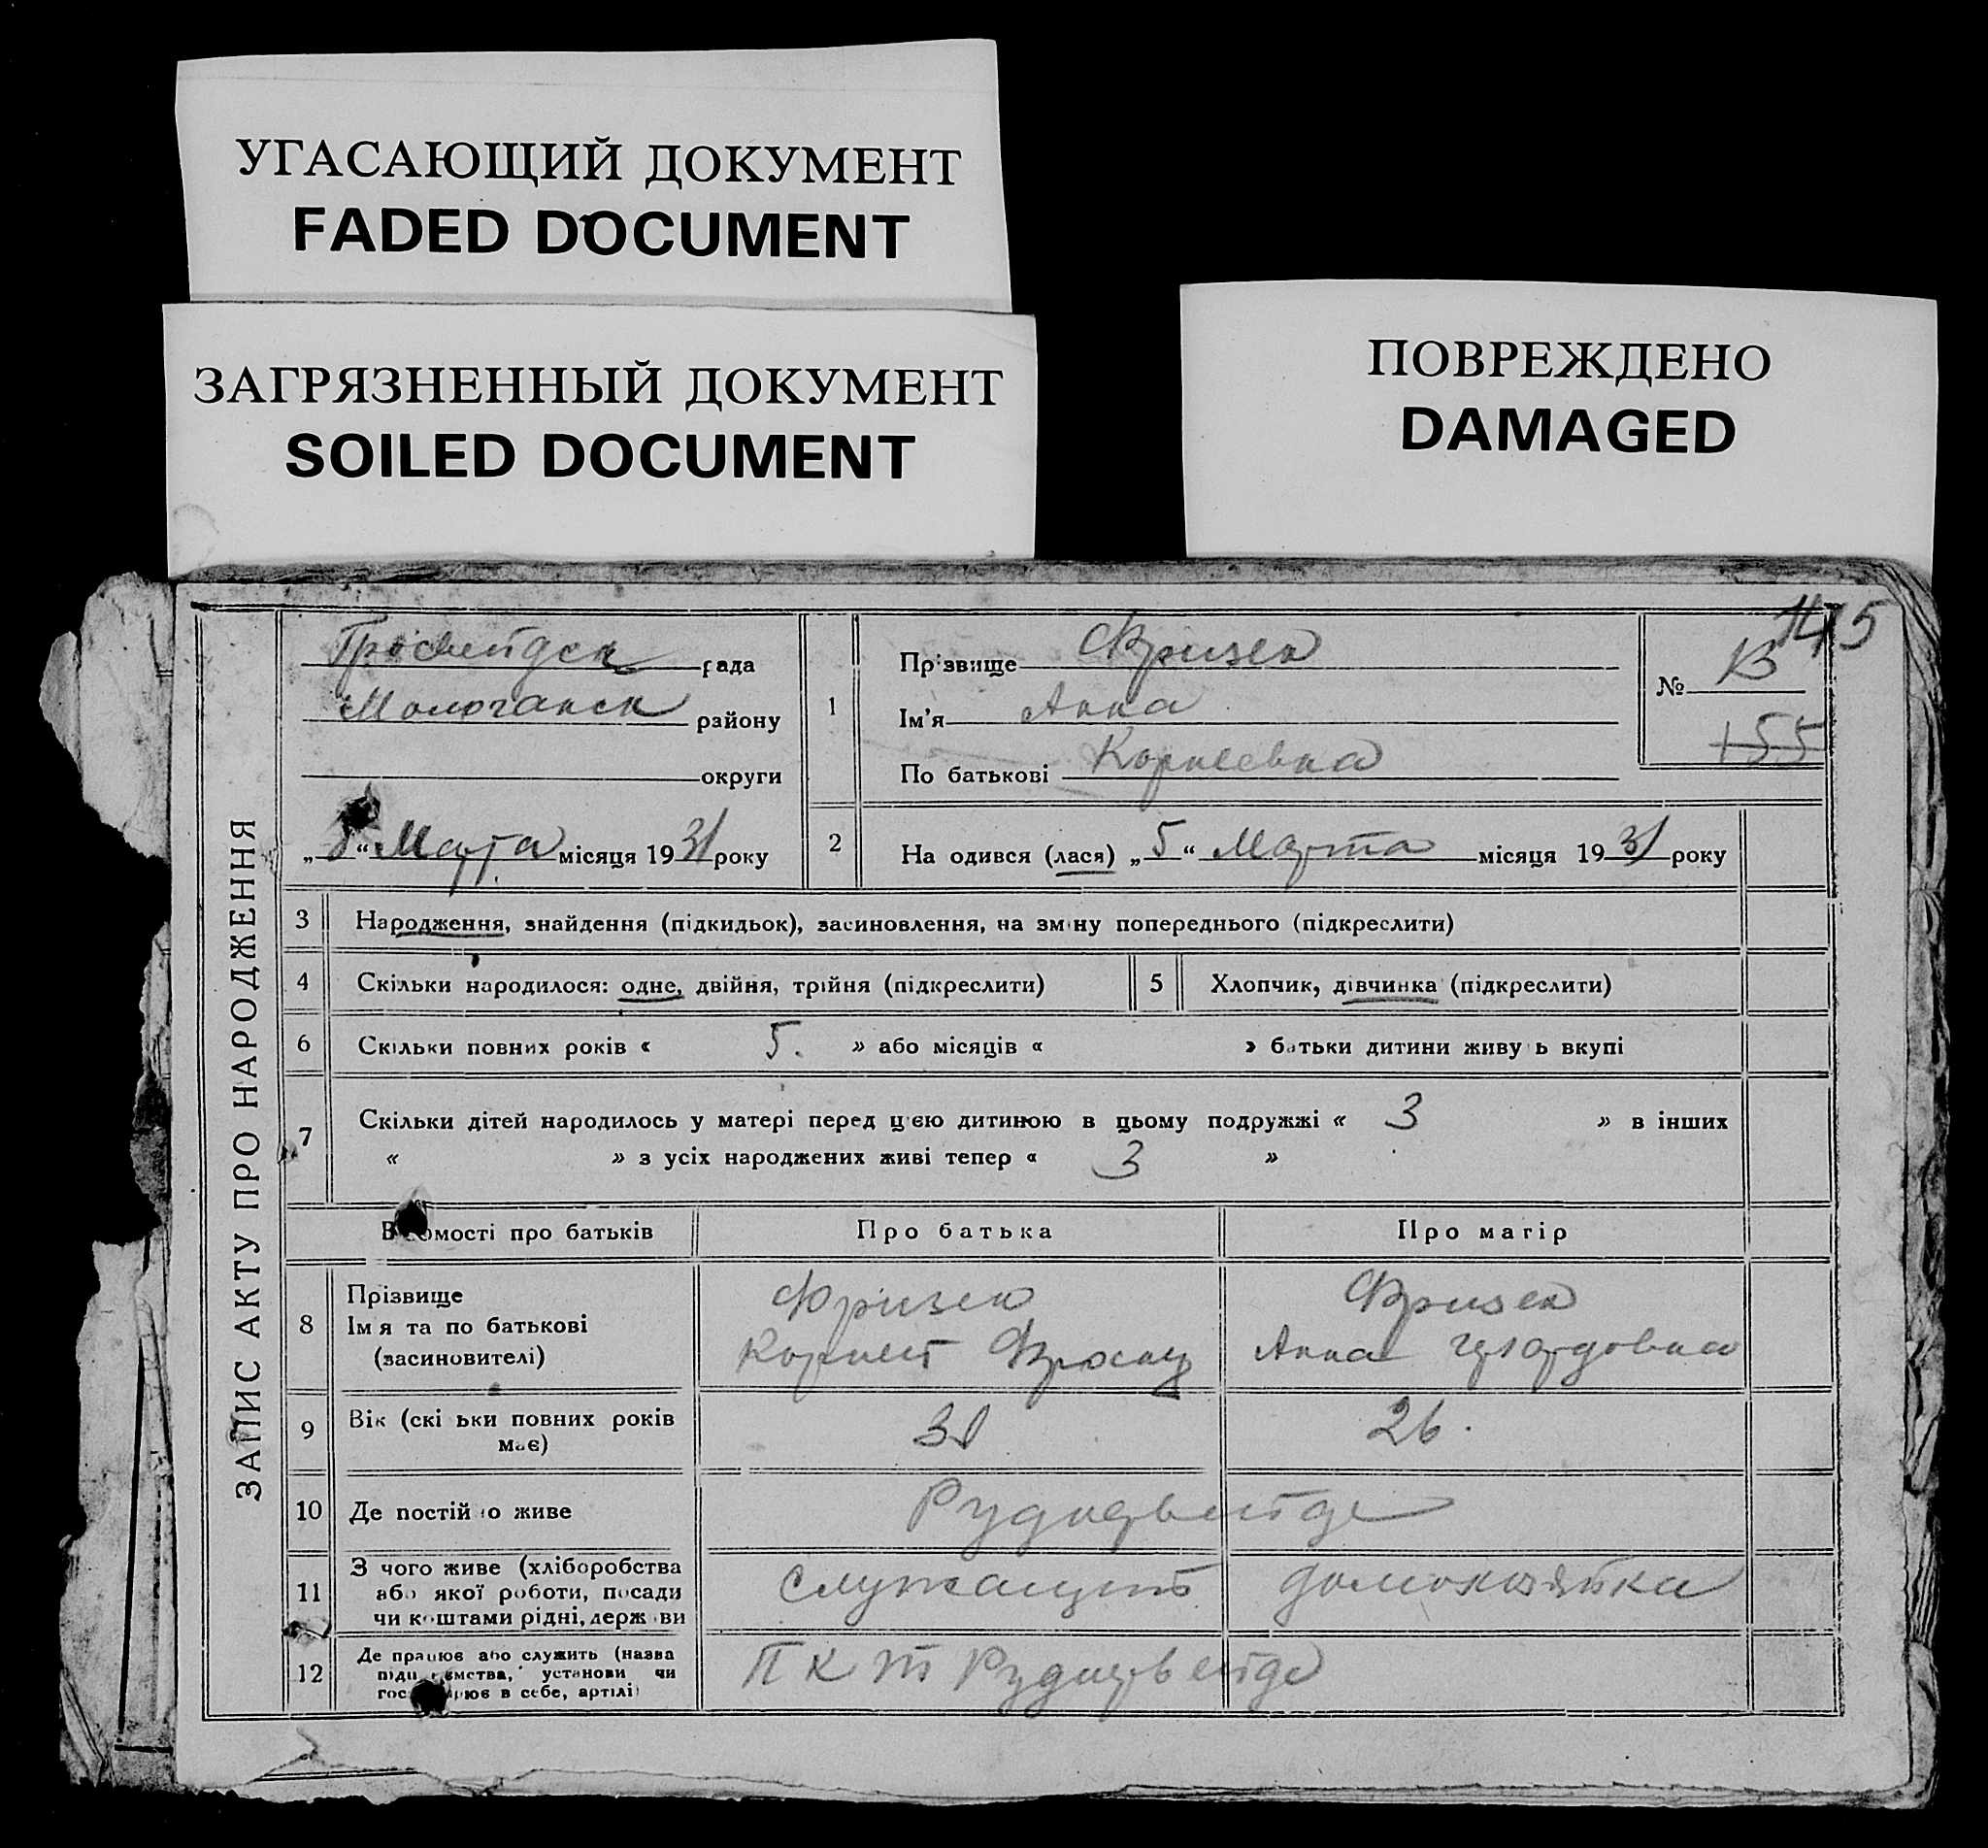 УГАСАЮЩИЙ ДОКУМЕНТ
FADED DOCUMENT
ЗАГРЯЗНЕННЫЙ ДОКУМЕНТ
SOILED DOCUMENT
ПОВРЕЖДЕНО
DAMAGED
ЗАПИС АКТУ ПРО НАРОДЖЕННЯ
рада
Молочанск району
округи
„8“ Марта місяця 1931 року
1
Прізвище Фризен
Ім'я Анна
По батькові Корнеевна
№ 13
145
155
2 На одився (лася) „5“ Марта місяця 1931 року
3 Народження, знайдення (підкидьок), засиновлення, на зміну попереднього (підкреслити)
4 Скільки народилося: одне, двійня, трійня (підкреслити)
5 Хлопчик, дівчинка (підкреслити)
6 Скільки повних років « 5. » або місяців « » батьки дитини живу ь вкупі
7 Скільки дітей народилось у матері перед цією дитиною в цьому подружжі « 3 » в інших
« » з усіх народжених живі тепер « 3 »
В омості про батьків
Про батька
Про матір
8 Прізвище
Ім я та по батькові
(засиновителі)
Фризен
Корней
Фризен
Анна
9 Вік (скі ьки повних років
має)
31
26.
10 Де постій о живе
11 З чого живе (хліборобства
або якої роботи, посади
чи коштами рідні, держ ви
служащий
домохозяйка
12 Де працює або служить (назва
підпр ємства, установи чи
гос рює в себе, артілі
П К Т